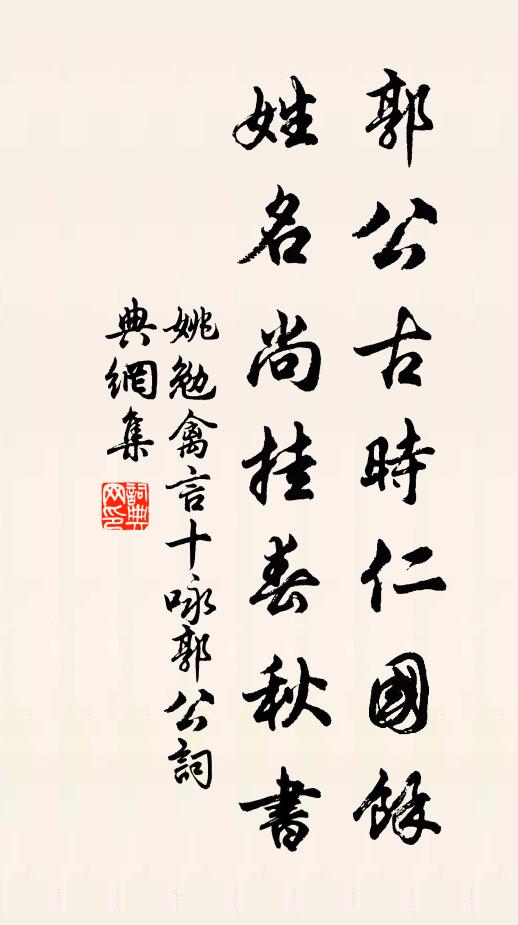 郭公古時仁國餘
姓名尚挂春秋書
姚勉禽言十咏郭公詞
典網集
詞典網印